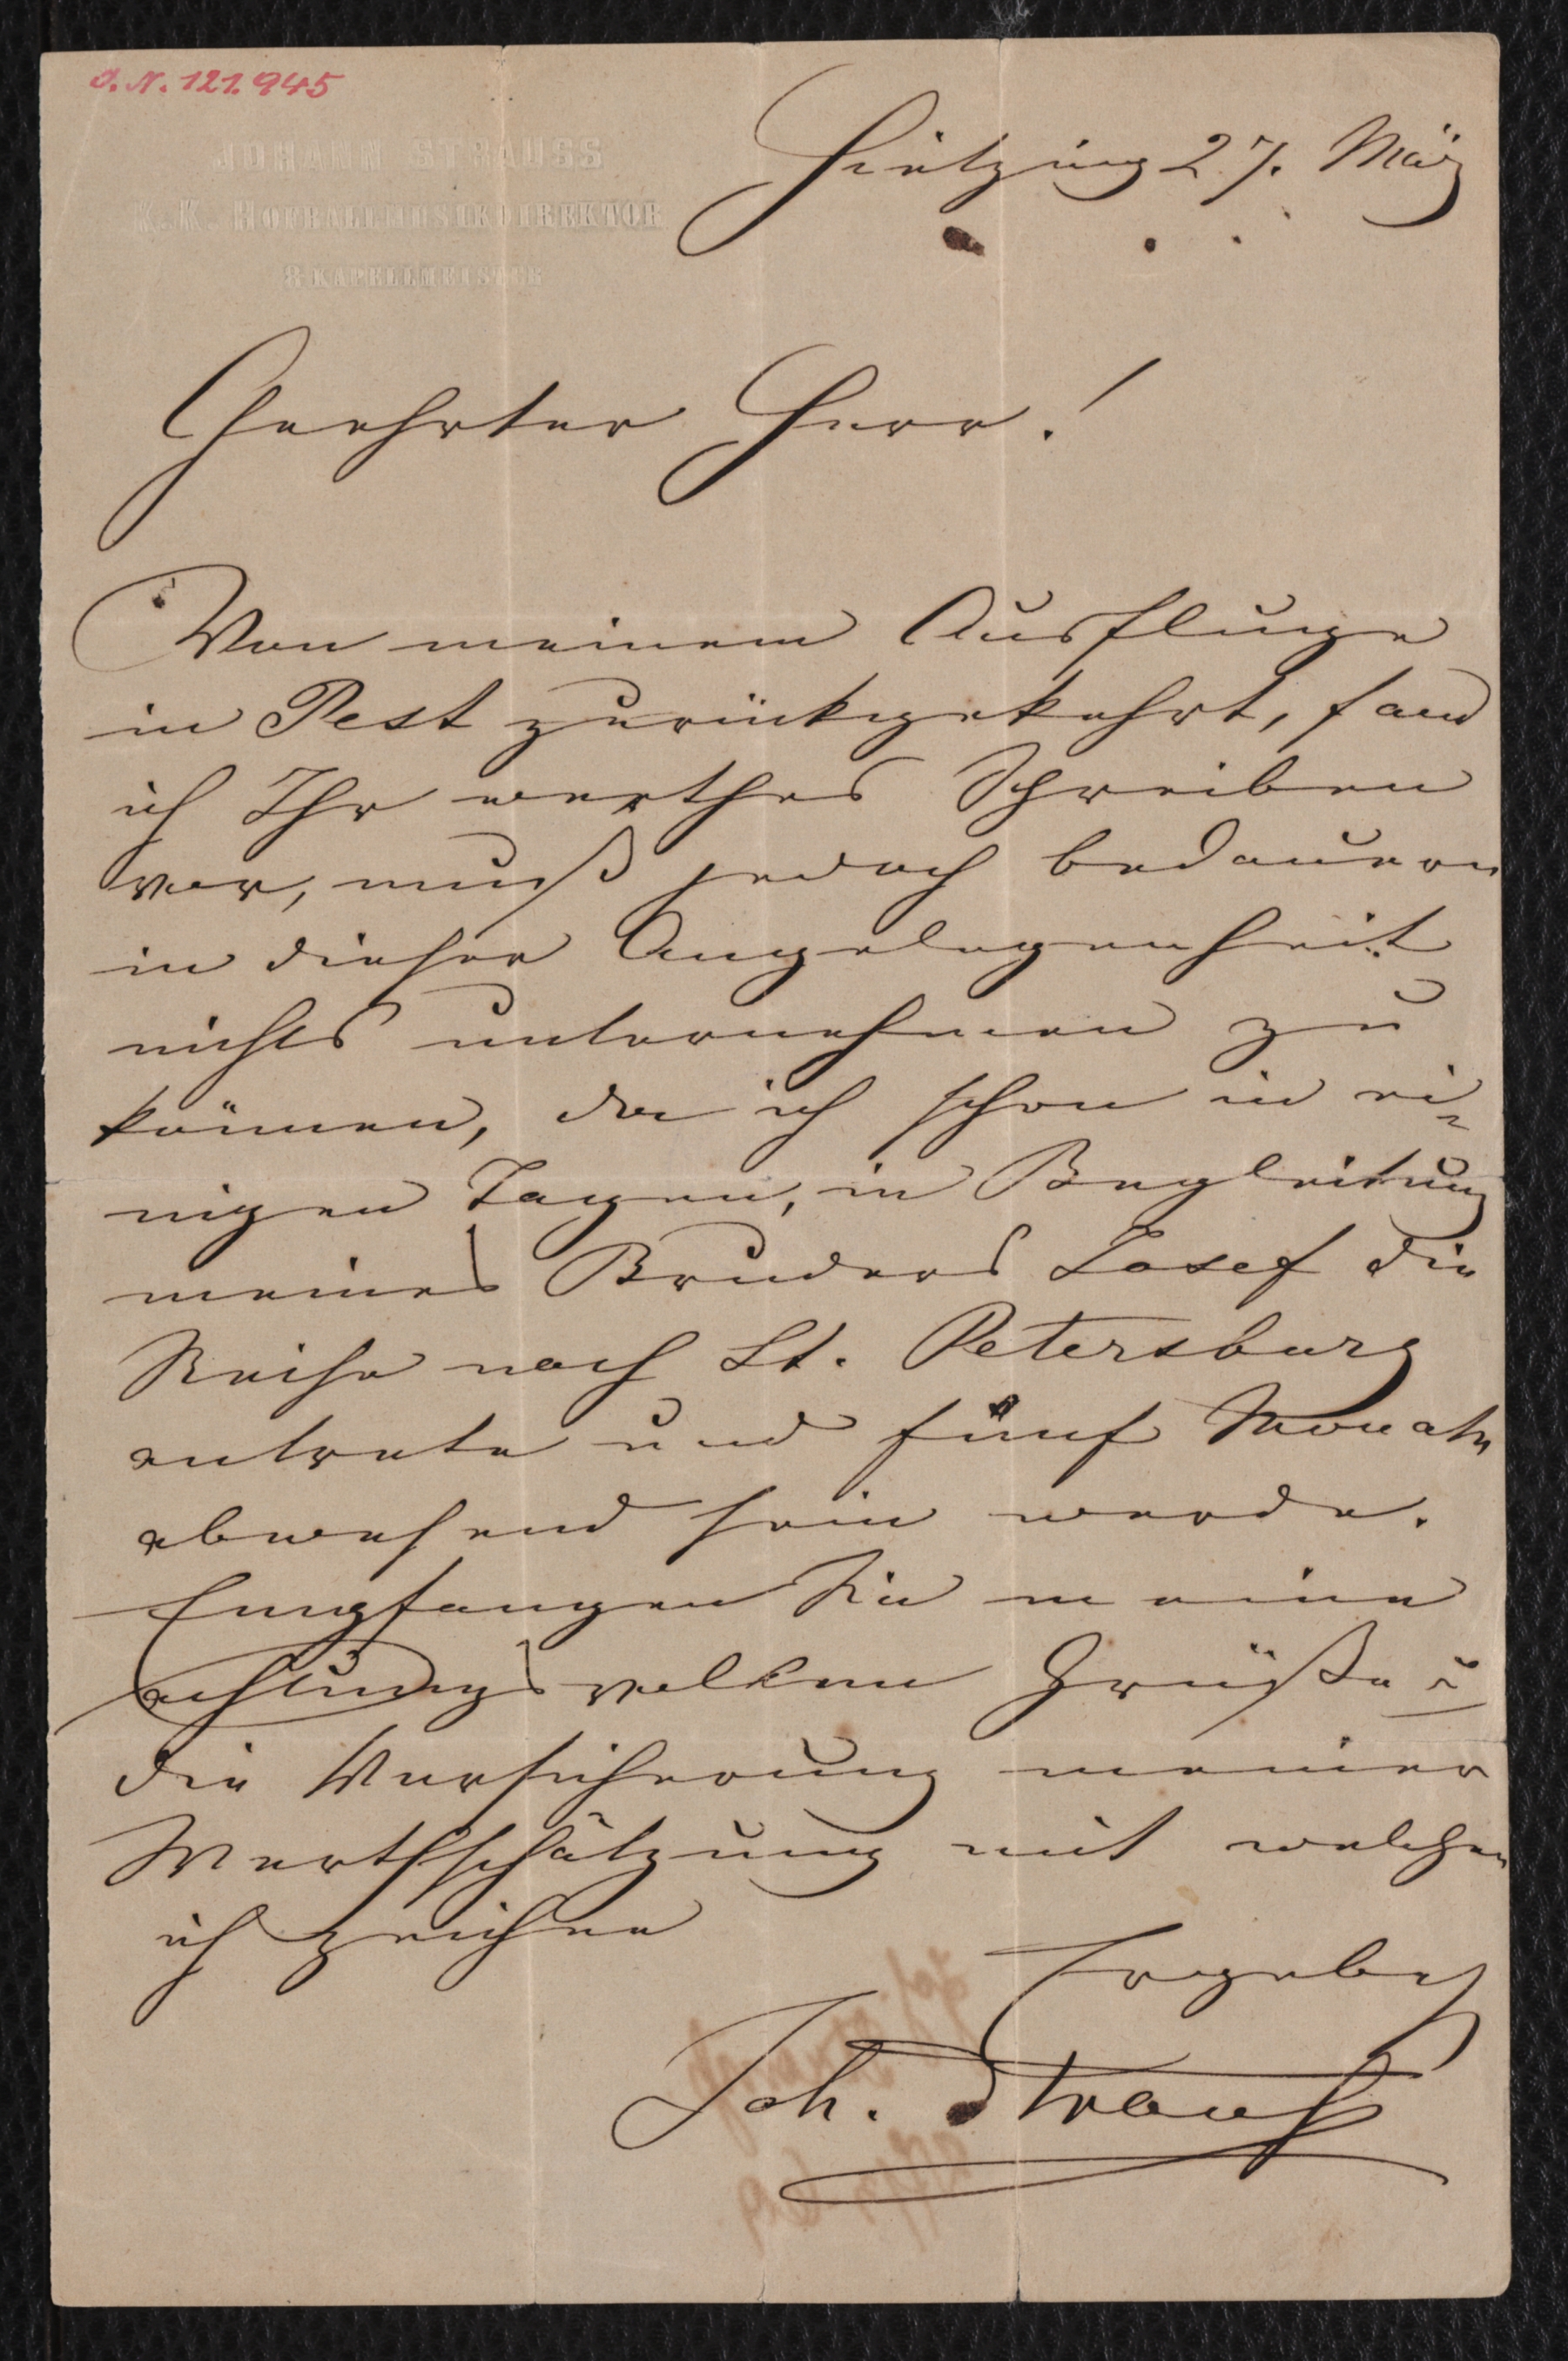 J.N. 121.945
JOHANN STRAUSS
K. K. HOFBALLMUSIKDIREKTOR
& KAPELLMEISTER
Hietzing 27. März
Geehrter Herr!
Von meinem Ausfluge
in Pest zurückgekehrt, fand
ich Ihr werthes Schreiben
vor, muß jedoch bedauern
in dieser Angelegenheit
nichts unternehmen zu
können, da ich schon in ei-
nigen Tagen, in Begleitung
meines Bruders Josef die
Reise nach St. Petersburg
antrete und fünf Monate
abwesend sein werde.
Empfangen Sie meine
achtungsvollen Grüße u
die Versicherung meiner
Werthschätzung mit welcher
ich zeichne
Ergebenst
Joh. Strauß